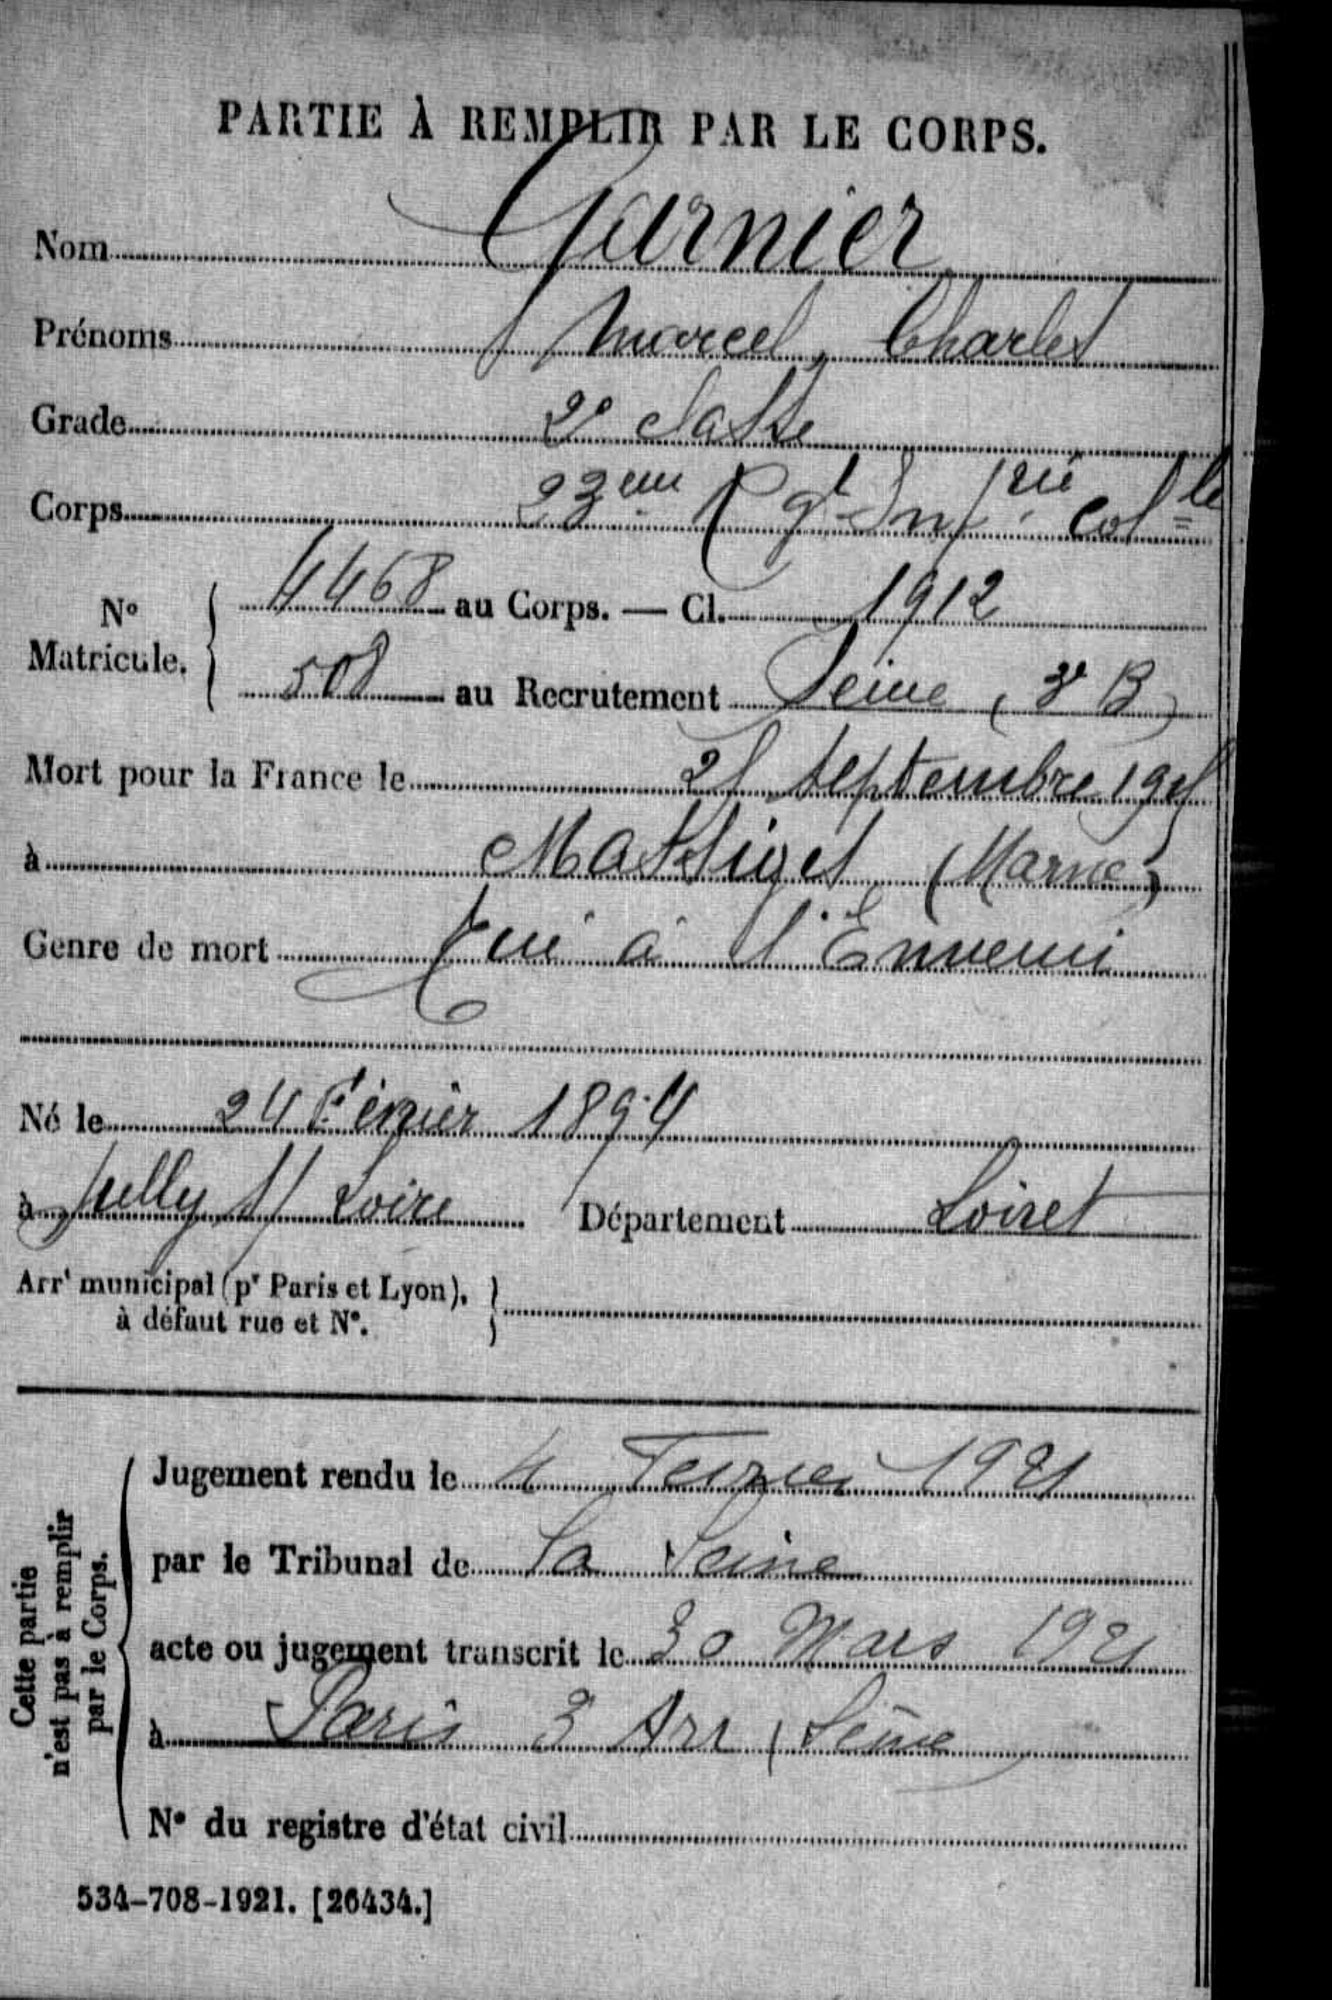 PARTIE À REMPLIR PAR LE CORPS.
Nom Garnier
Prénoms Marcel, Charles
Grade 2e classe
Corps 23ème Rgt Infrie Colle
N° Matricule. 4468 au Corps. — Cl. 1912
508 au Recrutement Seine (3e B)
Mort pour la France le septembre
à Massiges (Marne)
Genre de mort Tué à l'Ennemi
Né le 24 Février 1894
à Sully s/ Loire Département Loiret
Arrt municipal (pr Paris et Lyon),
à défaut rue et N°.
Cette partie
n'est pas à remplir
par le Corps.
Jugement rendu le 4 Fevrier 1921
par le Tribunal de la Seine
acte ou jugement transcrit le 30 Mars 1921
à Paris 3 Arr (Seine
N° du registre d'état civil
534-708-1921. [26434.]